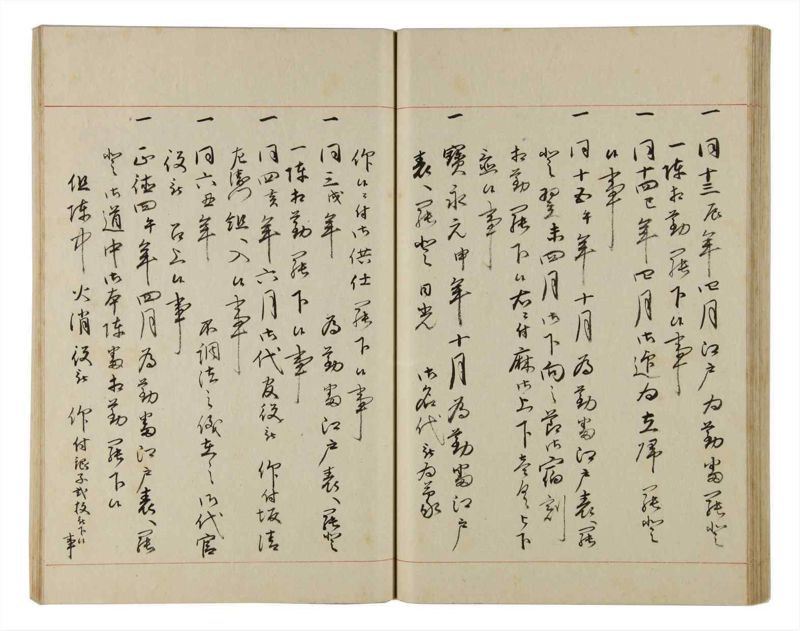 一 同十三辰年四月江戸為勤番罷登
一陣相勤罷下候事
一 同十四巳年四月御迎為立帰 罷登
候事
一 同十五午年十月為勤番江戸表へ罷
登翌未四月御下向之節御宿割
相勤罷下候右ニ付麻御上下壱具被下
候事
一 寶永元申年十月為勤番江戸
表へ罷登日光 御名代被為蒙
仰候ニ付御供仕罷下候事
一 同三戌年 為勤番江戸表へ罷登
一陣相勤罷下候事
一 同四亥年六月御代官役被 仰付坂清
左衛門組へ入候事
一 同六丑年 不調法之儀在之御代官
役被 召上候事
一 正徳四午年四月為勤番江戸表へ罷
登御道中御本陣番相勤罷下候
但陣中火消役被 仰付銀子弐枚被下候
事